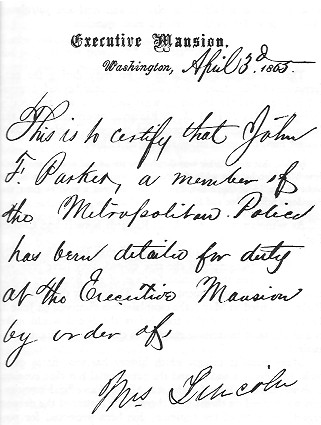 Executive Mansion.
Washington, April 3d 1865.
This is to certify that John
F. Parker, a member of
the Metropolitan Police
has been detailed for duty
at the Executive Mansion
by order of,
Mrs Lincoln